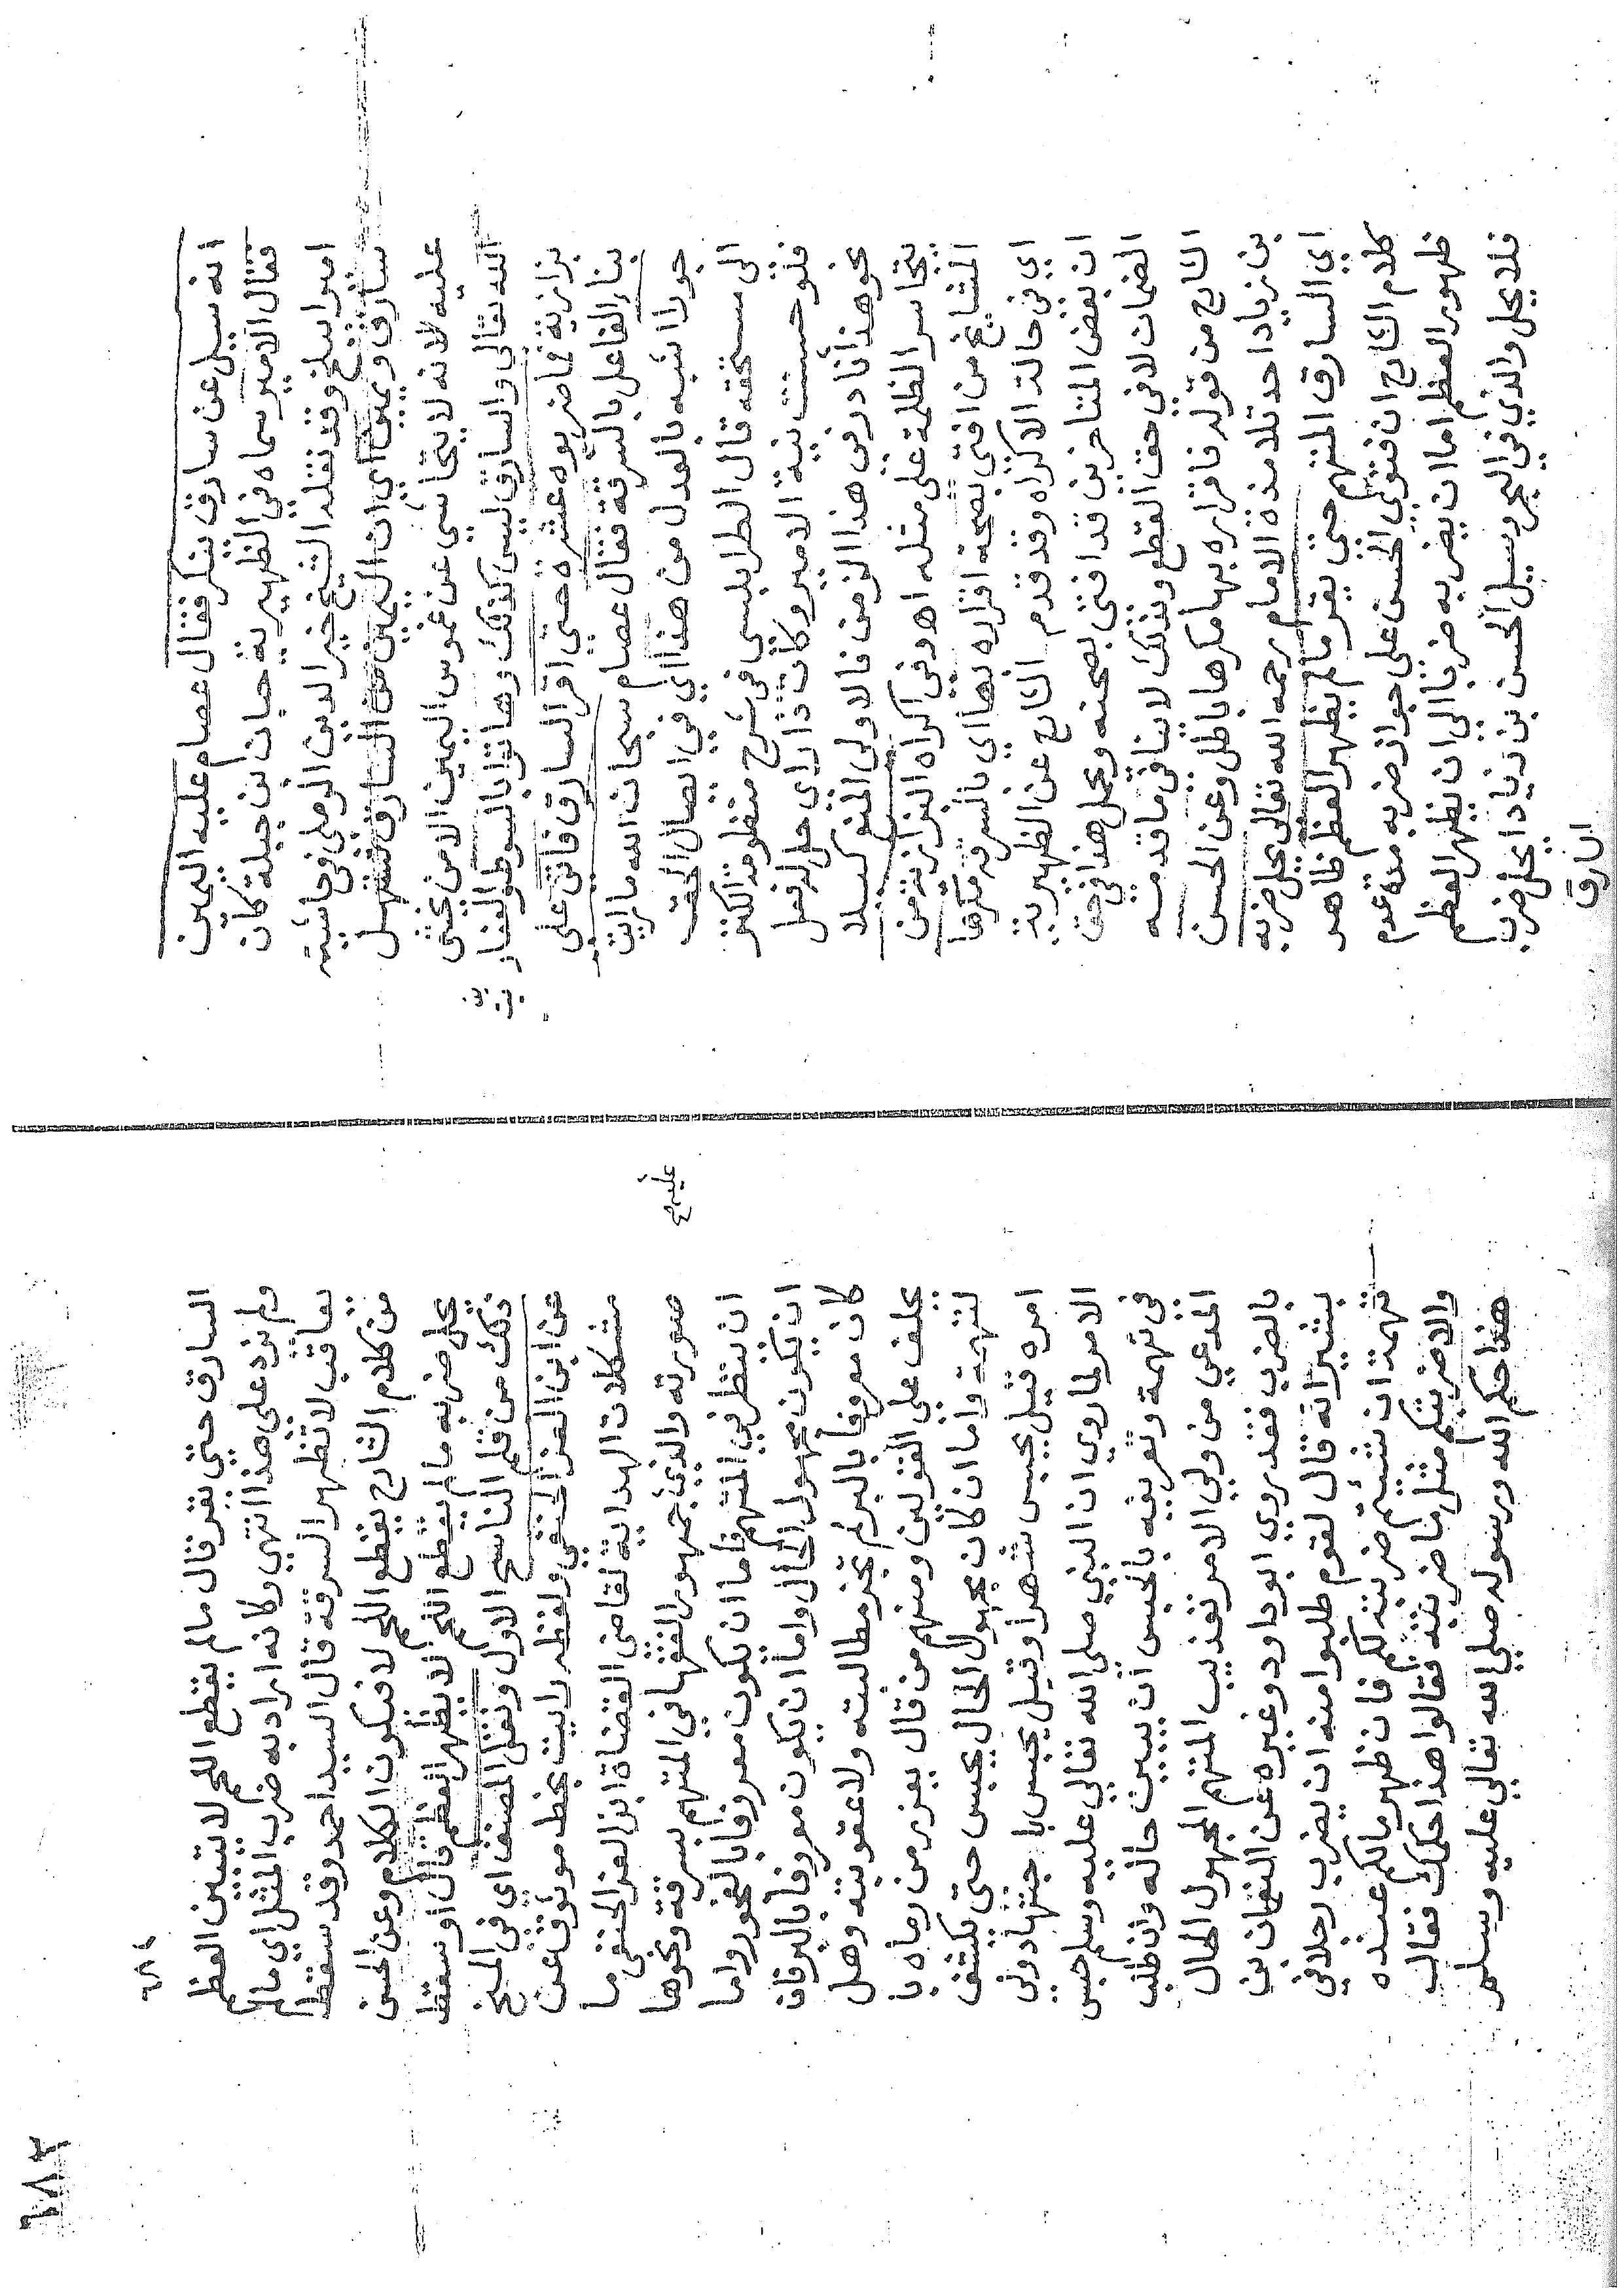 انه سيل عن سارق ينكر فقال عصام عليه اليمين
فقال الامير سماه في الظهيرية حبان بن جبلة كان
امير ابلخ وقد نقله الشيخ خير الدين الرملي في حاشية
سارق ويمين اي ان اليمين من السارق تستهل
عليه لانه لا يتحاشي عن غموس اليمين الا من يخشي
الله تعالى والسارق ليس كذلك وهاتوا بالسوط والعقا
بين
بزازية فما ضربوه عشرة حتي اقر السارق فاتي علي
بناء الفاعل بالسرقة فقال عصام سبحان الله ما رايت
جورا اشبه بالعدل من هذا اي في ايصال الحق
الى مستحقه قال الطرابلسي في شرح منظومة الكنز
فلو حسنت نية الامير وكان ذا راي حل لفعل
نحو هذا نادر في هذا الزمن فالاولى المنع كيلا
يتجاسر الظلمة على مثله اه وفي اكراه البزازية من
المشايخ من افتى بصحة اقراره بها اي بالسرقة مكرها
اي في حالة الاكراه وقد قدم الشارح عن الظهيرية
ان بعض المتاخرين قد افتى بصحته ويحمل هذا في حق
الضمان لا في حق القطع وبذلك لا ينافي ما قدمته
الشارح من قوله فاقراره بها مكرها باطل وعن الحسن
بن زياد احد تلامذة الامام رحمه الله تعالي يحل ضربه
اي السارق المتهم حتى يقر ما لم يظهر العظم ظاهر
كلام الشارح ان فتوى الحسن على جواز ضربه مدة عدم
ظهور العظم اما ان يضربه ضربا الى ان يظهر العظم
فلا يحل والذي في البحر وسيل الحسن بن زياد ايحل ضرب
السارق
٢٨٢
السارق حتى يقر قال ما لم يقطع اللحم لا يتبين العظم
ولم يزد على هذا انتهي وكانه اراد به ضرب المثل اي ما لم
يعاقب لا تظهر السرقة قال السيد احمد وقد سقط
من كلام الشارح يقطع اللحم لا فيكون الكلام وعن الحسن
يحل ضربه ما لم يقطع اللحم لا يظهر العظم قال او سقط
ذلك من قلم الناسخ الاول ونقل المصنف اي في المنح
عن ابن العز الحنفي ولفظه رايت بخط موثوق عن
مشكلات الهداية لقاضي القضاة ابن العز الحنفي ما
صورته والذي عليه جمهور الفقها في المتهم بسرقة ونحوها
ان ننظر في المتهم فاما ان يكون معروفا بالفجور واما
ان يكون مجهول الحال واما ان يكون معروفا بالبر فان
كان معروفا بالبر لم تجز مطالبته ولا عقوبته وهل
يحلف على القولين ومنهم من قال يعزر من رماه با
لتهمة واما ان كان مجهول الحال يحبس حتى يكشف
امره قيل يحبس شهرا وقيل يحبس باجتهاد ولي
الامر لما روي ان النبي صلى الله تعالي عليه وسلم حبس
في تهمة وتعريفيه بالحبس ان يبين حاله وان طلب
المدعي من ولي الامر تعذيب المتهم المجهول الحال
بالضرب فقد روي ابو داود وغيره عن النعمان بن
بشير انه قال لقوم طلبوا منه ان يضرب رجلا في
تهمة ان شيتم ضربته لكم فان ظهر مالكم عنده
والا ضربتكم مثل ما ضربته فقالوا هذا حكمك فقال
هذا حكم الله ورسوله صلي الله تعالي عليه وسلم